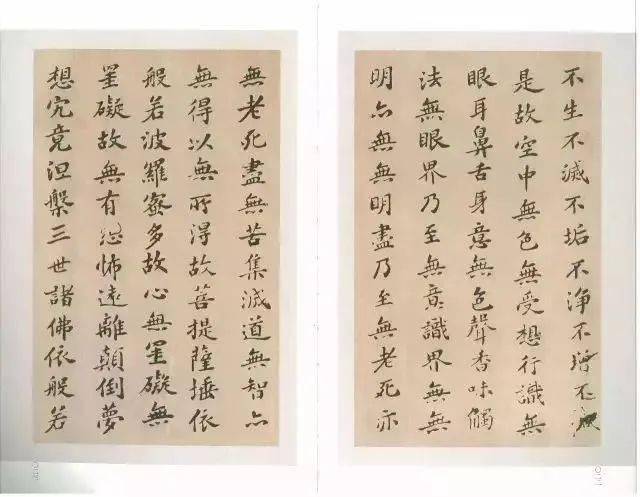 不生不滅不垢不淨不增不減
是故空中無色無受想行識無
眼耳鼻舌身意無色聲香味觸
法無眼界乃至無意識界無無
明亦無無明盡乃至無老死亦
無老死盡無苦集滅道無智亦
無得以無所得故菩提薩埵依
般若波羅蜜多故心無罣礙無
罣礙故無有恐怖遠離顛倒夢
想究竟涅槃三世諸佛依般若